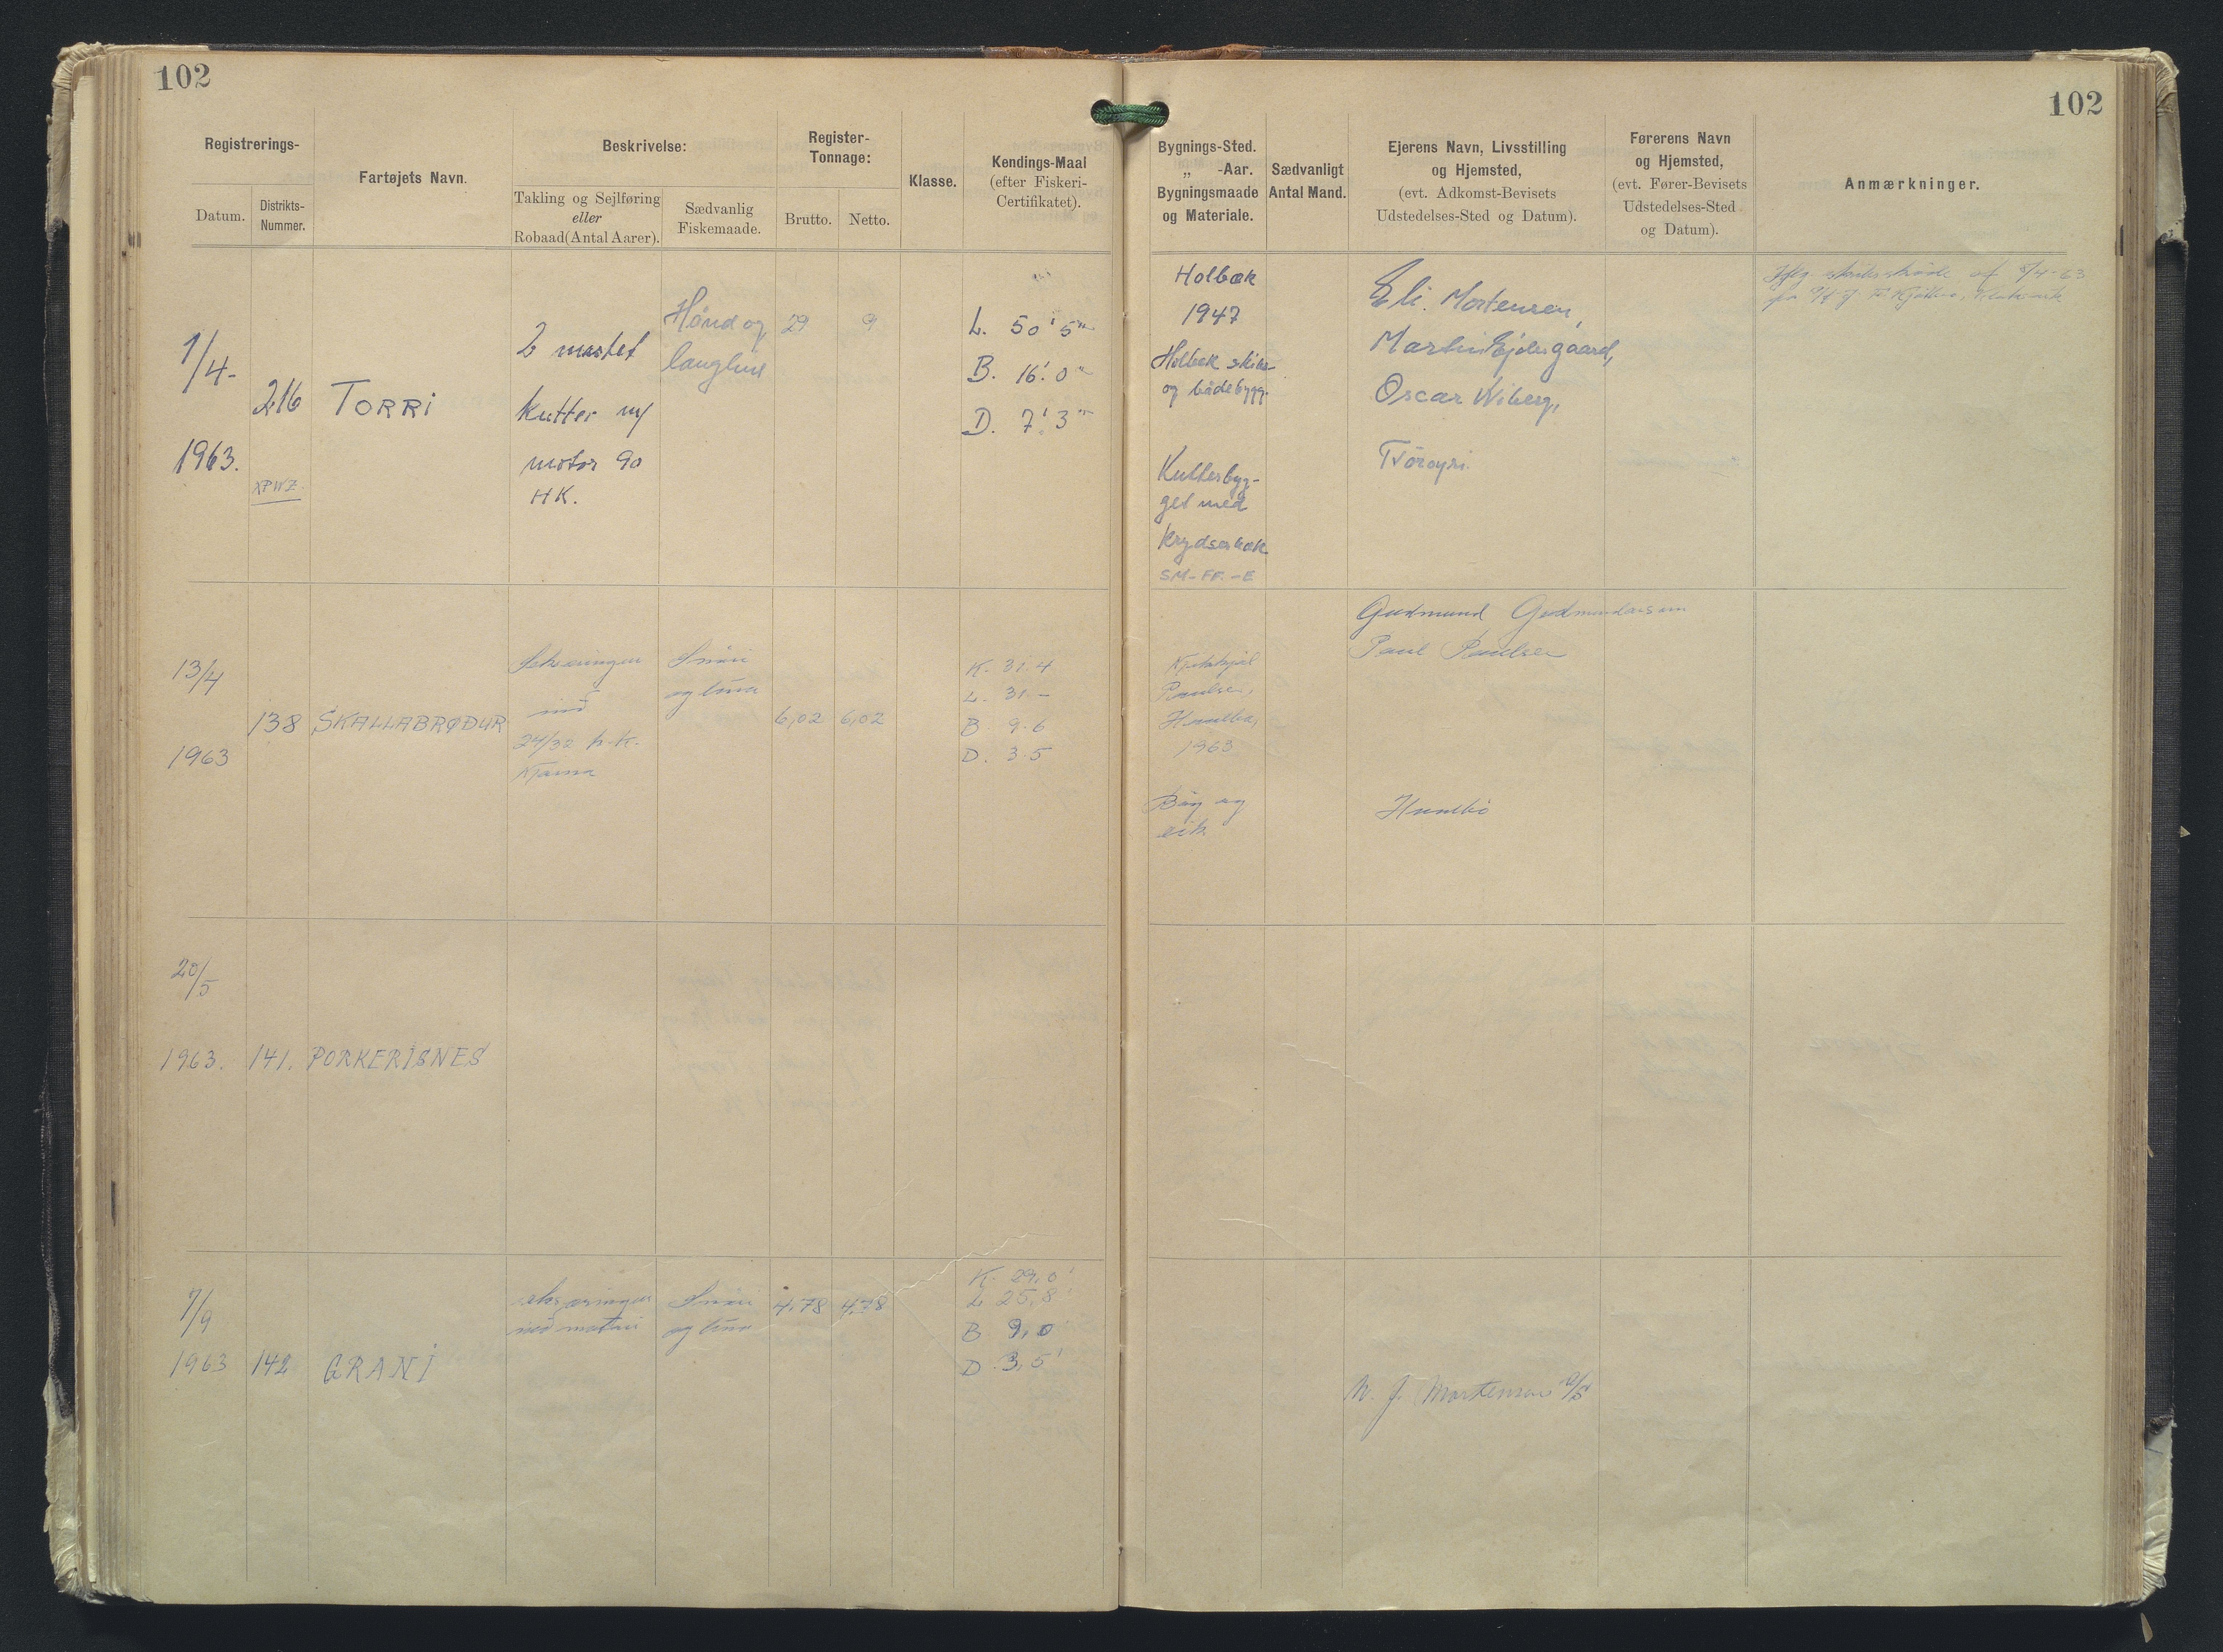 102
102
Registrerings-
Datum.
Distrikts-
Nummer.
Fartøjets Navn.
Beskrivelse:
Takling og Sejlføring
eller
Robaad (Antal Aarer).
Sædvanlig
Fiskemaade.
Register-
Tonnage:
Brutto.
Netto.
Klasse.
Kendings-Maal
(efter Fiskeri-
Certifikatet).
Bygnings-Sted.
„ -Aar.
Bygningsmaade
og Materiale.
Sædvanligt
Antal Mand.
Ejerens Navn, Livsstilling
og Hjemsted,
(evt. Adkomst-Bevisets
Udstedelses-Sted og Datum).
Førerens Navn
og Hjemsted,
(evt. Fører-Bevisets
Udstedelses-Sted
og Datum).
Anmærkninger.
1/4-
1963.
216
XPWZ.
TORRI
2 mastet
kutter m/
motor 90
HK.
Hånd og
langline
29
9
L. 50' 5"
B. 16'. 0"
D. 7'. 3"
Holbæk
1947
Holbæk skibs-
og bådebygg.
Kutterbyg-
get med
krydserhæk
SM-FF.-E
Eli Mortensen,
Martin Ejdesgaard,
Oscar Wiberg,
Tvöroyri.
af 8/4-63
13/4
1963
138
SKALLABRØÐUR
24/32 h.k.
Snøri
og línu
6,02
6,02
K. 31.4
L. 31.-
B 9.6
D. 3.5
Poulsen,
1963
Bøg og
eik
Gudmund Gudmundarson
Paul Poulsen
20/5
1963.
141.
PORKERISNES
7/9
1963
142
GRANI
Snøri
og línu
4,78
4,78
K. 29,0'
L 25,8'
B 9,0
D. 3,5'
N. J. Mortensen A/S